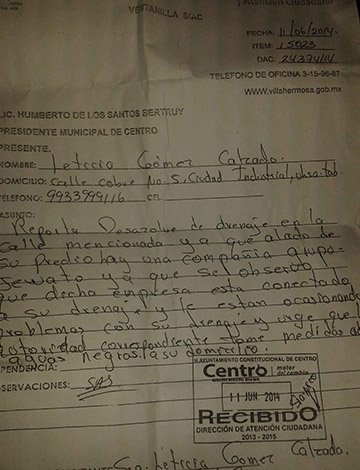 VENTANILLA SIAC
Atención Ciudadana
FECHA: 11/06/2014.
ITEM: 15023
DAC: 24374/14
TELEFONO DE OFICINA 3-15-96-87
www.villahermosa.gob.mx
LIC. HUMBERTO DE LOS SANTOS BERTRUY
PRESIDENTE MUNICIPAL DE CENTRO
PRESENTE.
NOMBRE: Leticia Gómez Calzado.
DOMICILIO: Calle cobre No 5, Ciudad Industrial, Vhsa. Tab.
TELEFONO: 9933999116 CEL
ASUNTO:
Reporta Desazolve de drenaje en la
calle mencionada ya que alado de
su predio hay una compañia Grupo
ya que se observó
que dicha empresa esta conectado
a su drenaje y le estan ocasionando
problemas con su drenaje y urge que
autoridad correspondiente tome medidas al
aguas negras. a su domicilio.
DEPENDENCIA:
OBSERVACIONES: SAS
H. AYUNTAMIENTO CONSTITUCIONAL DE CENTRO
Centro motor del cambio
11 JUN. 2014
RECIBIDO
DIRECCIÓN DE ATENCIÓN CIUDADANA
2013 - 2015
Leticia Gómez Calzado.